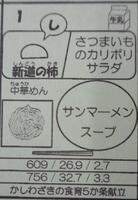 1
牛乳
し
さつまいも
のカリポリ
サラダ
しんどう かき
新道の柿
ちゅうか
中華めん
サンマーメン
スープ
609 / 26.9 / 2.7
756 / 32.7 / 3.3
かしわざきの食育5か条献立